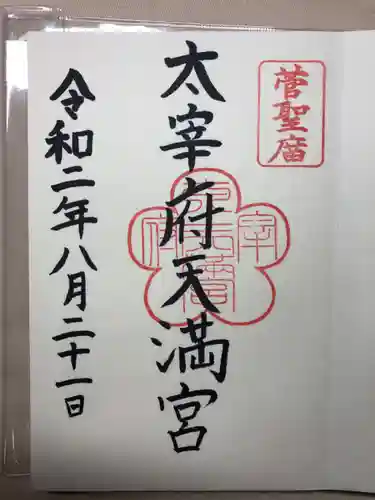 菅聖庿
太宰府天満宮
令和二年八月二十一日